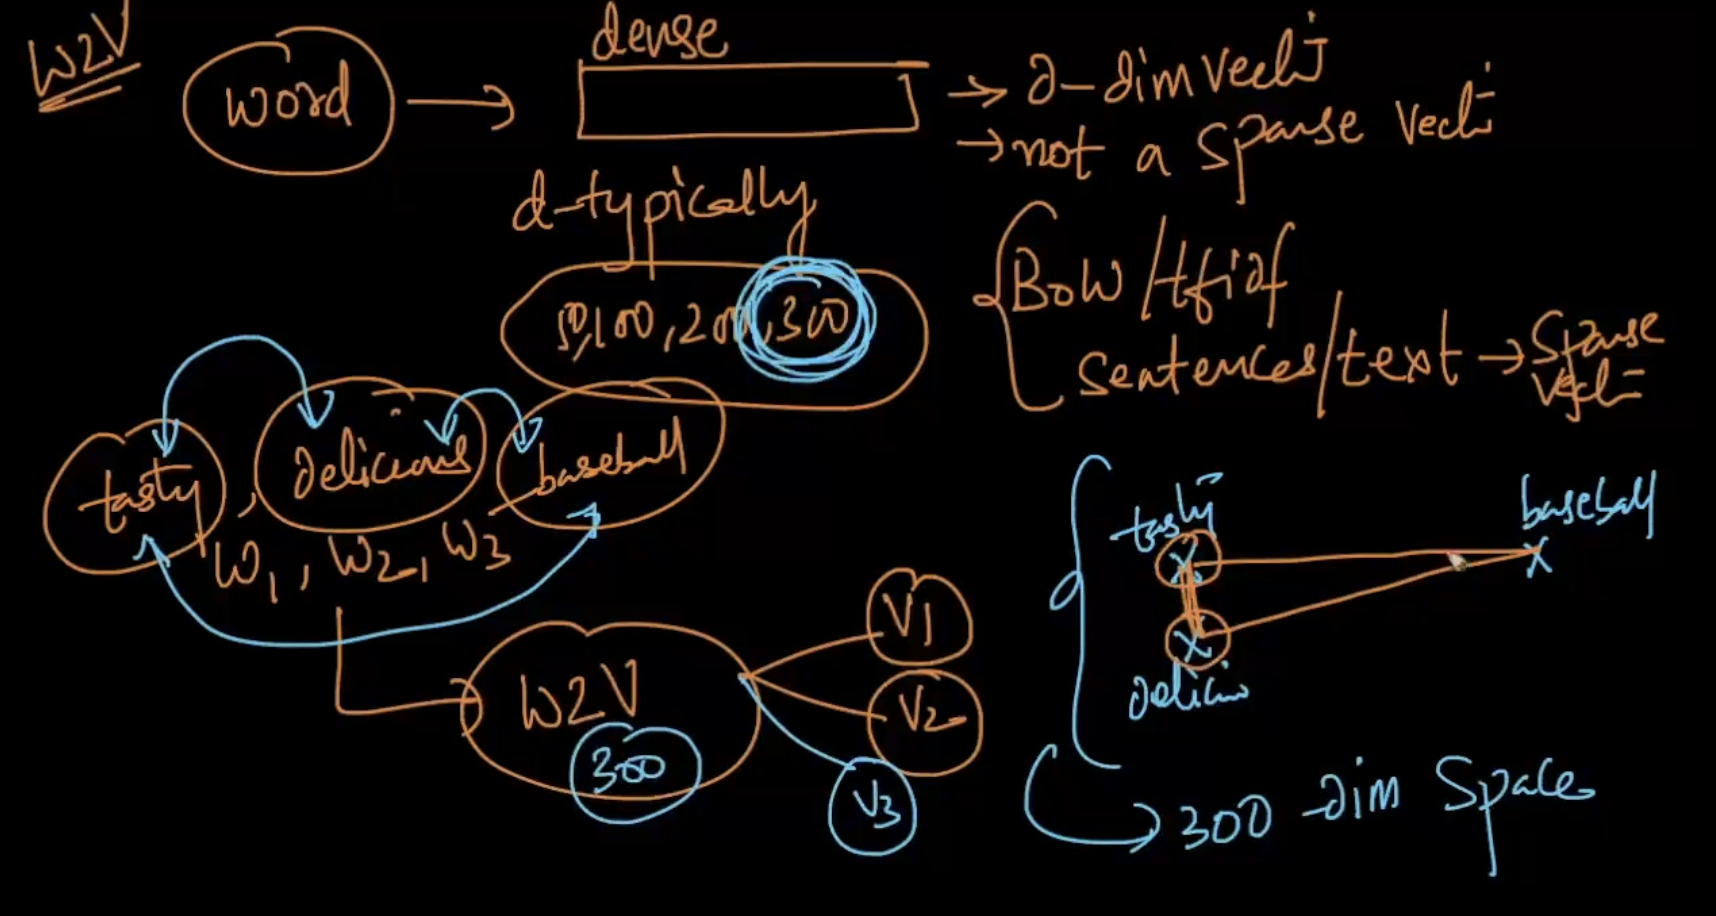 W2V
word → dense → d-dim vect
→ not a sparse vect
d-typically
50,100,200,300
BoW/tfidf
sentences/text → sparse
vect
tasty, delicious, baseball
w1, w2, w3
W2V
300
V1
V2
V3
tasty
baseball
delicio
→ 300-dim space